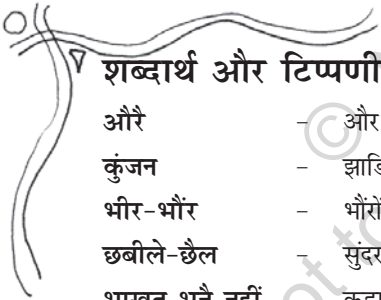 शब्दार्थ और टिप्पणी
औरै – और
कुंजन – झाड़ि
भीर-भौंर – भौंरों
छबीले-छैल – सुंदर